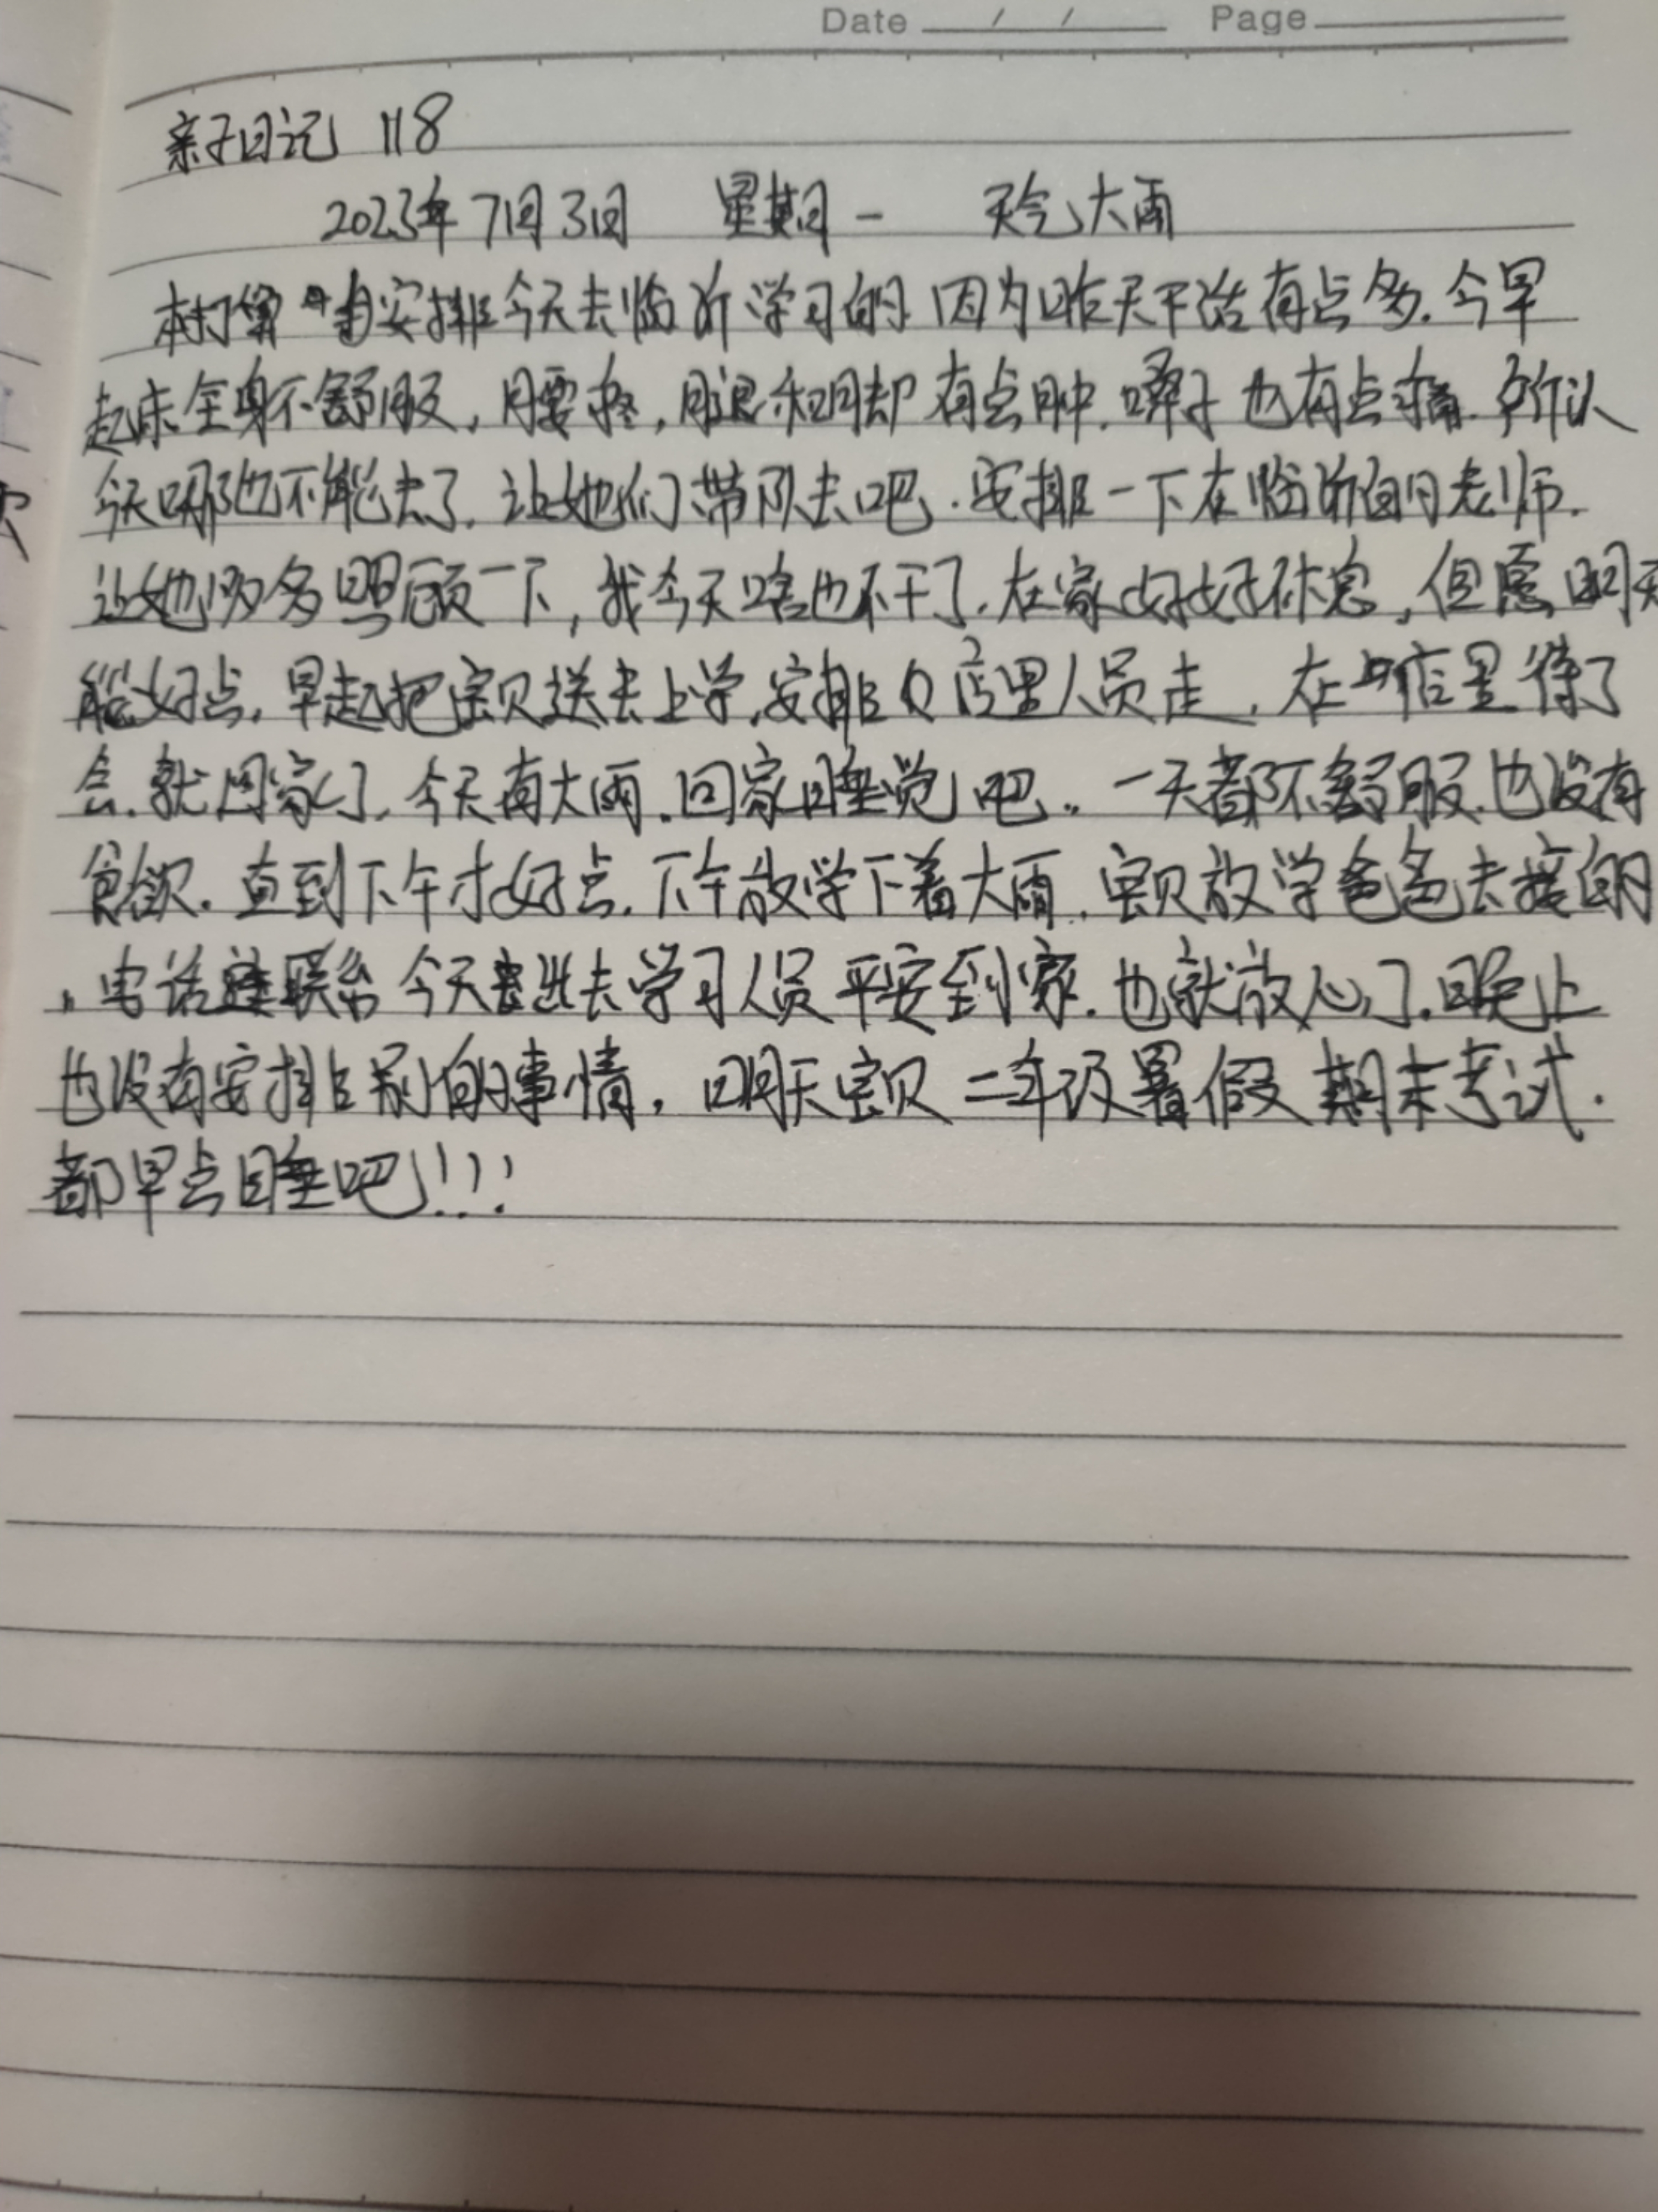 Date / / Page
亲子日记 118
2023年7月3日 星期一 天气大雨
本打算安排今天去临沂学习的 因为昨天干活有点多.今早
起床全身不舒服,腰疼,腿和脚有点肿.嗓子也有点痛.所以
今天哪也不能去了.让她们带队去吧.安排一下在临沂的老师.
让她多多照顾一下,我今天啥也不干了.在家好好休息,但愿明天
能好点.早起把宝贝送去上学,安排店里人员走.在店里待了
会.就回家了,今天有大雨.回家睡觉吧..一天都不舒服.也没有
食欲.直到下午才好点.下午放学下着大雨.宝贝放学爸爸去接的
.电话联系今天出去学习人员平安到家.也就放心了.晚上
也没有安排别的事情,明天宝贝二年级暑假期末考试.
都早点睡吧!!!